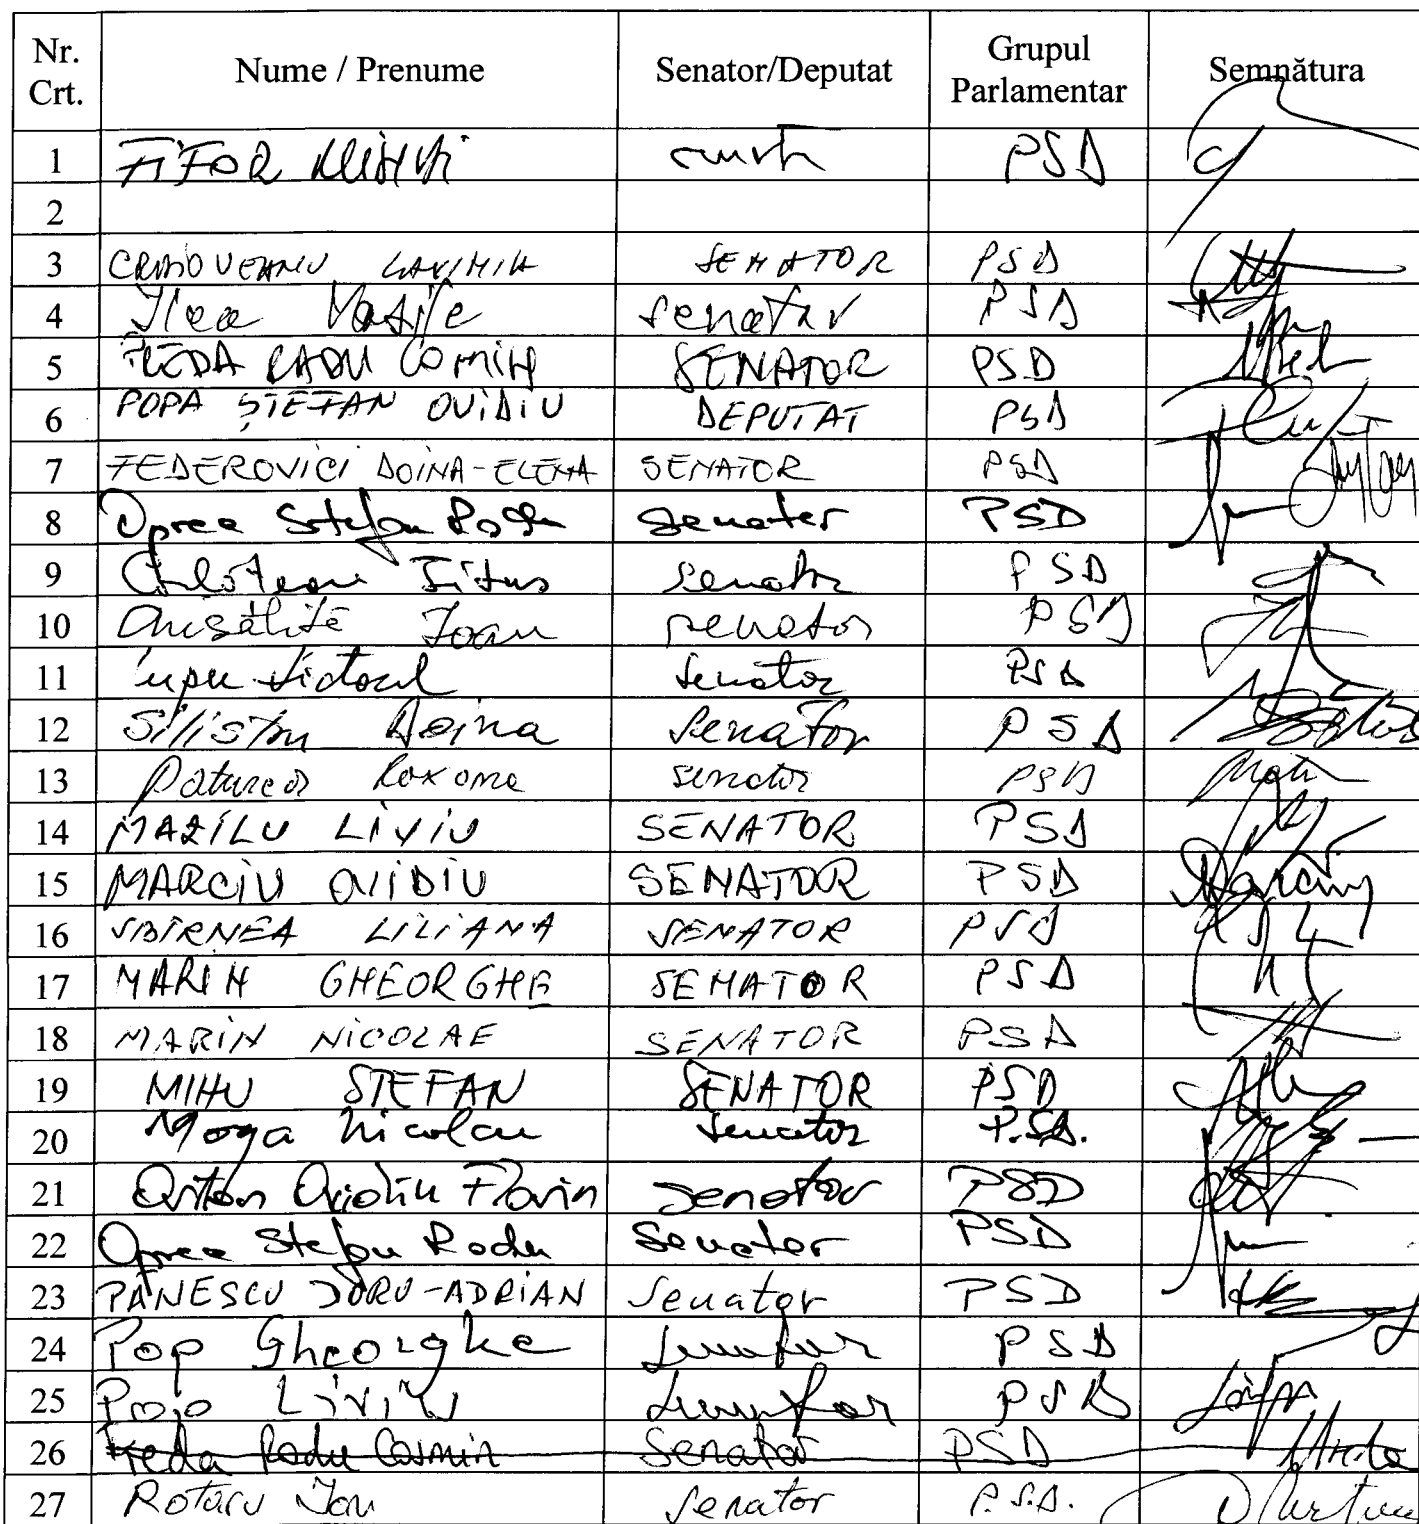 Nr. Crt. Nume / Prenume Senator/Deputat Grupul Parlamentar Semnătura
1 FIFOR MIHAI PSD
2
3 CRAIOVEANU LAVINIA SENATOR PSD
4 Ilea Vasile senator PSD
5 RADU COSMIN SENATOR PSD
6 POPA ȘTEFAN OVIDIU DEPUTAT PSD
7 FEDEROVICI DOINA-ELENA SENATOR PSD
8 Oprea Stefan Radu Senator PSD
9 Corlățean Titus Senator PSD
10 Chisăliță Ioan senator PSD
11 Lupu Victorel Senator PSD
12 Silistru Doina Senator PSD
13 Pațurcă Roxana senator PSD
14 MAZILU LIVIU SENATOR PSD
15 MARCIU OVIDIU SENATOR PSD Marciu
16 SBÎRNEA LILIANA SENATOR PSD
17 MARIN GHEORGHE SENATOR PSD
18 MARIN NICOLAE SENATOR PSD
19 MIHU STEFAN SENATOR PSD
20 Moga Nicolae Senator P.SD.
21 Ovidiu Florin Senator PSD
22 Oprea Stefan Radu Senator PSD
23 PĂNESCU DORU-ADRIAN Senator PSD
24 Pop Gheorghe Senator PSD
25 Pop Liviu Senator PSD
26 Radu Cosmin Senator PSD
27 Rotaru Ion Senator P.S.D.